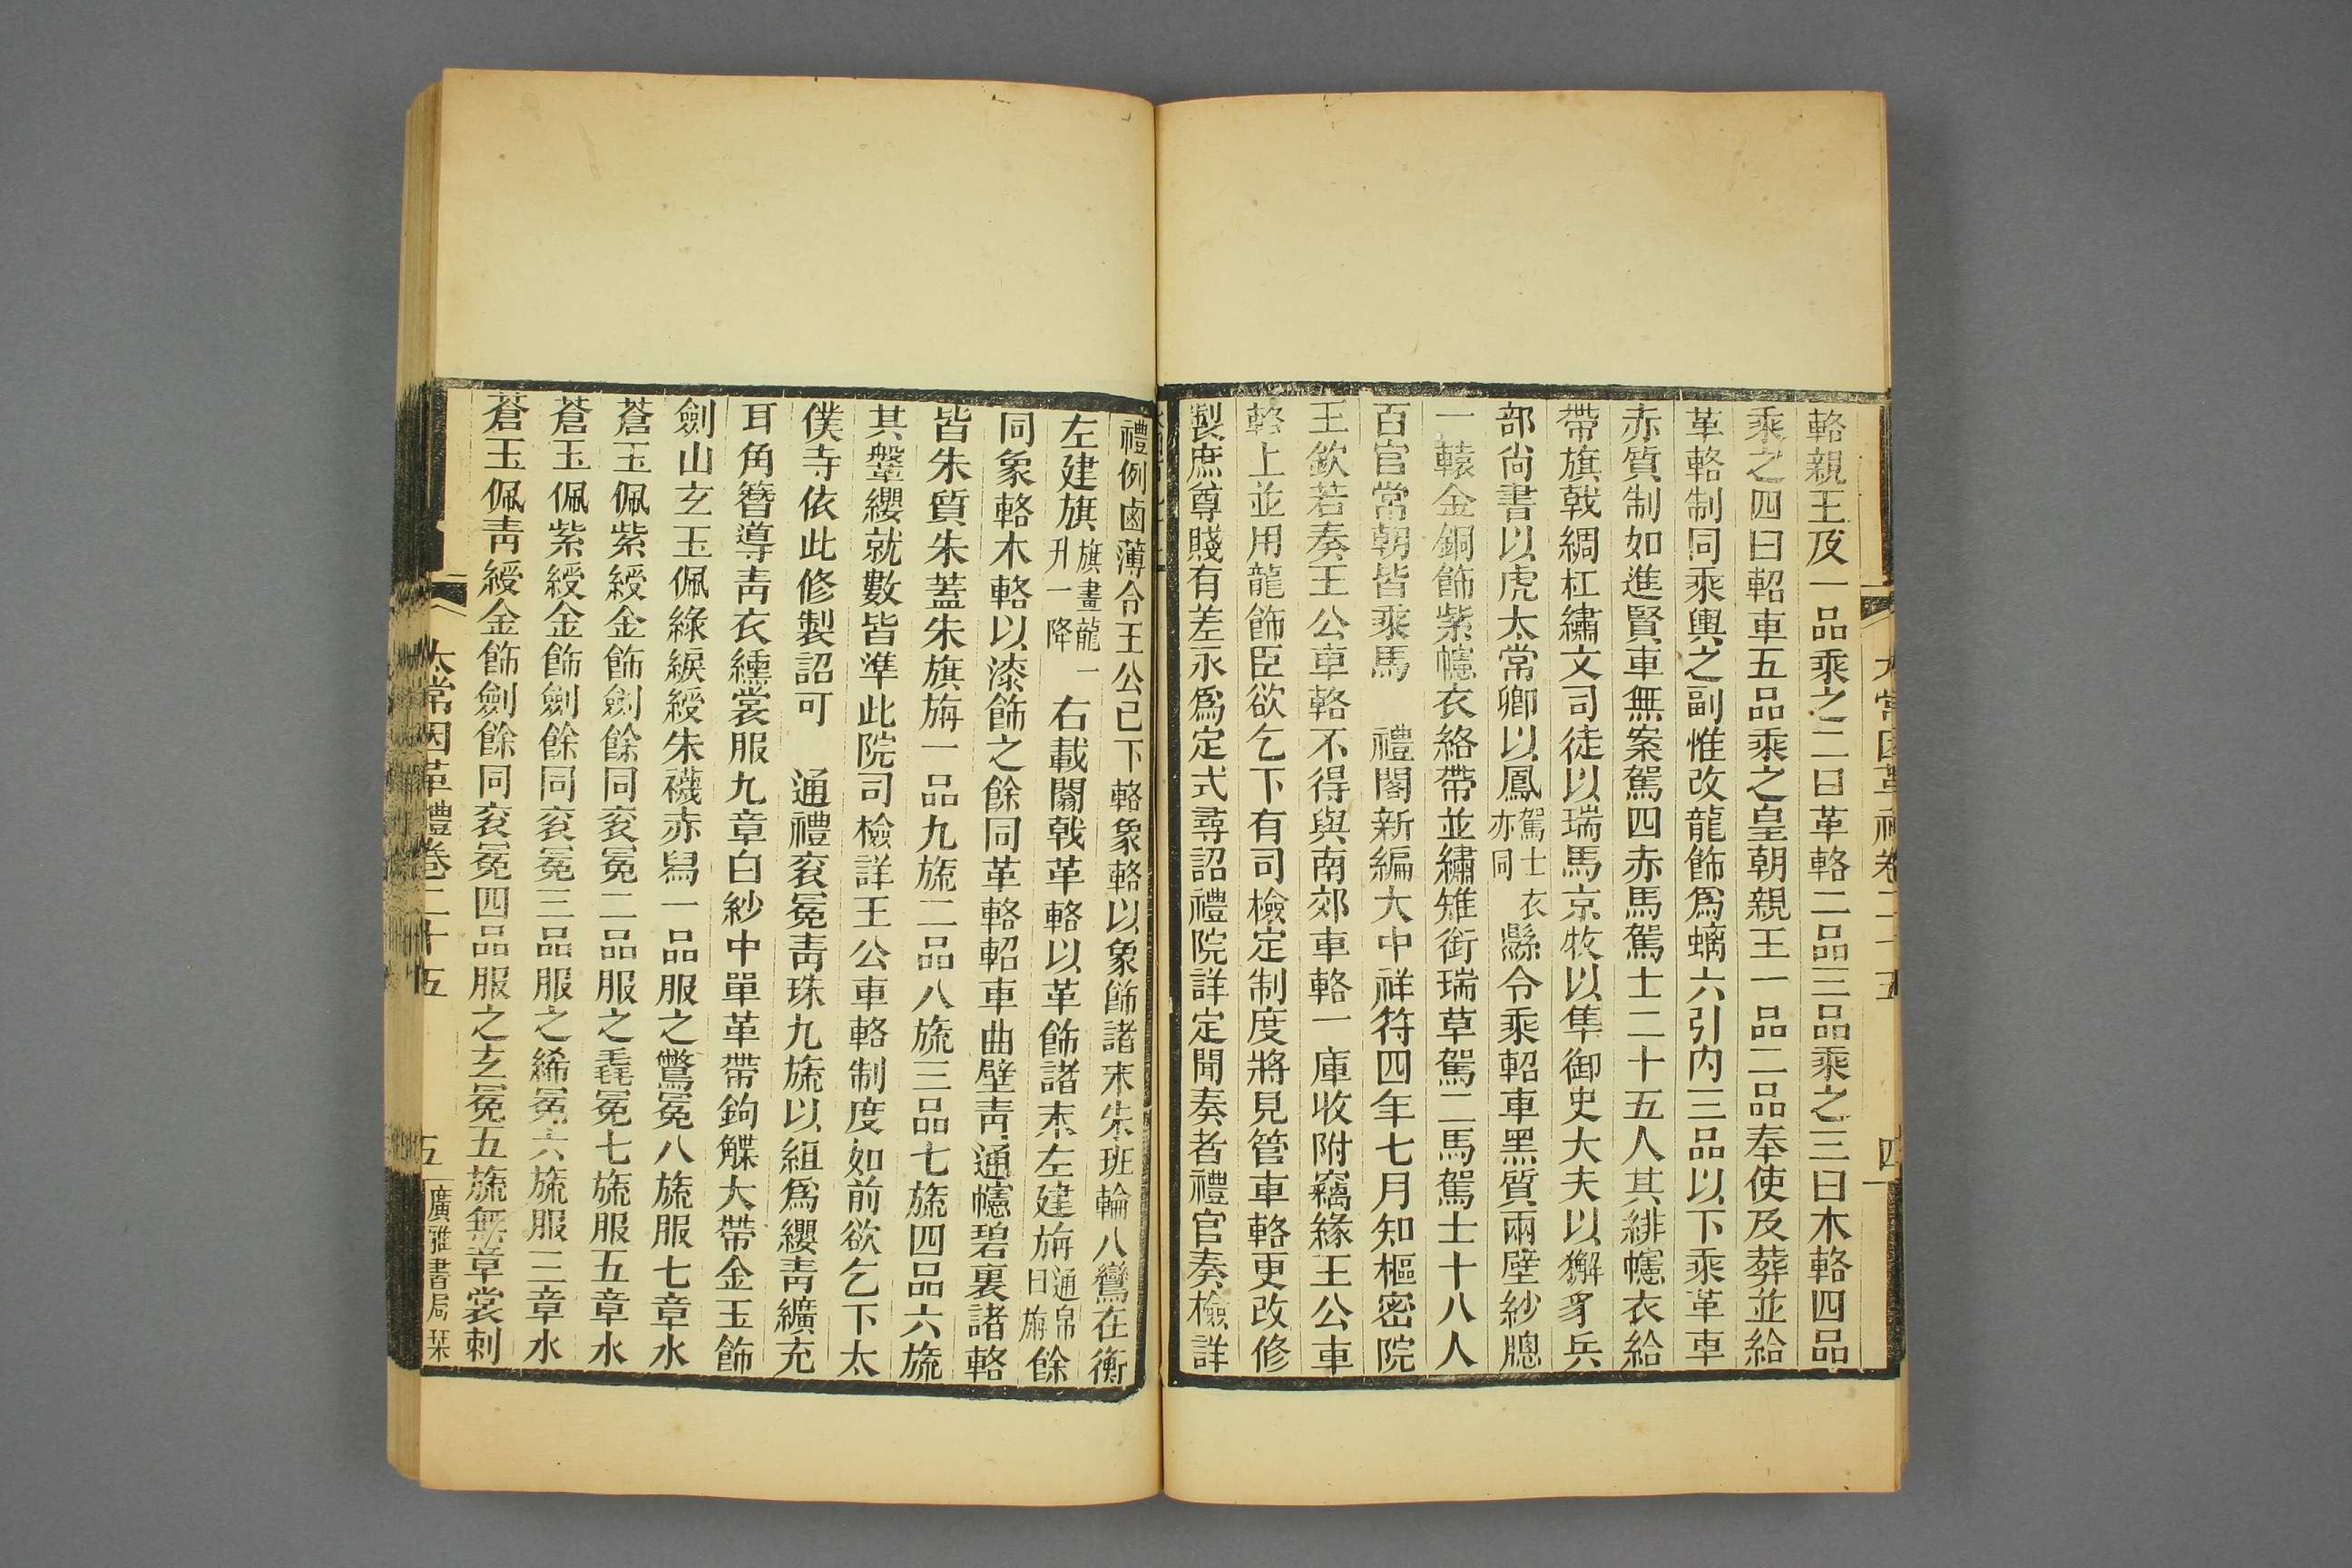 輅親王及一品乘之二曰革輅二品三品乘之三曰木輅四品
乘之四曰軺車五品乘之皇朝親王一品二品奉使及葬並給
革輅制同乘輿之副惟改龍飾爲螭六引内三品以下乘革車
赤質制如進賢車無案駕四赤馬駕士二十五人其緋幰衣給
帶旗戟綢杠繡文司徒以瑞馬京牧以隼御史大夫以獬豸兵
部尚書以虎太常卿以鳳駕士衣亦同縣令乘軺車黑質兩壁紗牕
一轅金銅飾紫幰衣絡帶並繡雉銜瑞草駕二馬駕士十八人
百官常朝皆乘馬　禮閣新編大中祥符四年七月知樞密院
王欽若奏王公車輅不得與南郊車輅一庫收附竊緣王公車
輅上並用龍飾臣欲乞下有司檢定制度將見管車輅更改修
製庶尊賤有差永爲定式尋詔禮院詳定聞奏者禮官奏檢詳
禮例鹵薄令王公已下輅象輅以象飾諸末朱班輪八鸞在衡
左建旗旗畫龍一升一降右載闟戟革輅以革飾諸末左建旃通帛曰旃餘
同象輅木輅以漆飾之餘同革輅軺車曲壁靑通幰碧裏諸輅
皆朱質朱蓋朱旗旃一品九旒二品八旒三品七旒四品六旒
其鞶纓就數皆準此院司檢詳王公車輅制度如前欲乞下太
僕寺依此修製詔可　通禮衮冕靑珠九旒以組爲纓靑纊充
耳角簪導靑衣纁裳服九章白紗中單革帶鉤䚢大帶金玉飾
劍山玄玉佩綠綟綬朱襪赤舄一品服之鷩冕八旒服七章水
蒼玉佩紫綬金飾劍餘同衮冕二品服之毳冕七旒服五章水
蒼玉佩紫綬金飾劍餘同衮冕三品服之絺冕六旒服三章水
蒼玉佩靑綬金飾劍餘同衮冕四品服之玄冕五旒無章裳刺
太常因革禮卷二十五　五　廣雅書局栞